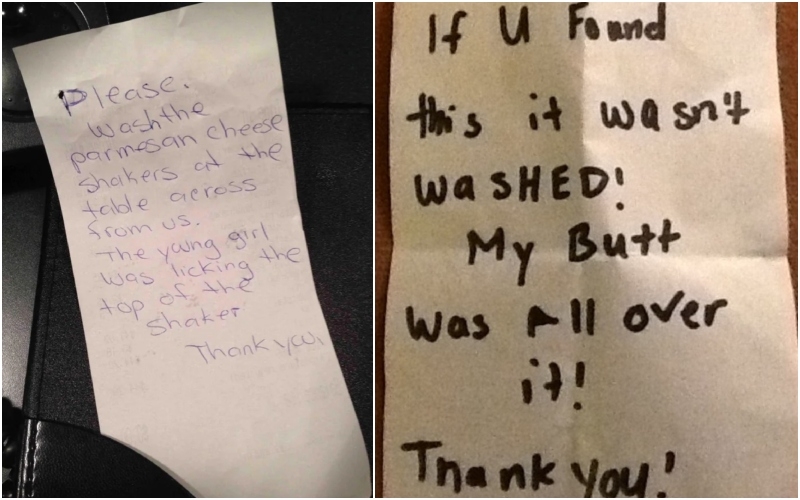 Please.
Wash the
parmesan cheese
shakers at the
table across
from us.
The young girl
was licking the
top of the
shaker
Thank you,
If U Found
this it wasn't
waSHED!
My Butt
was All over
it!
Thank you!